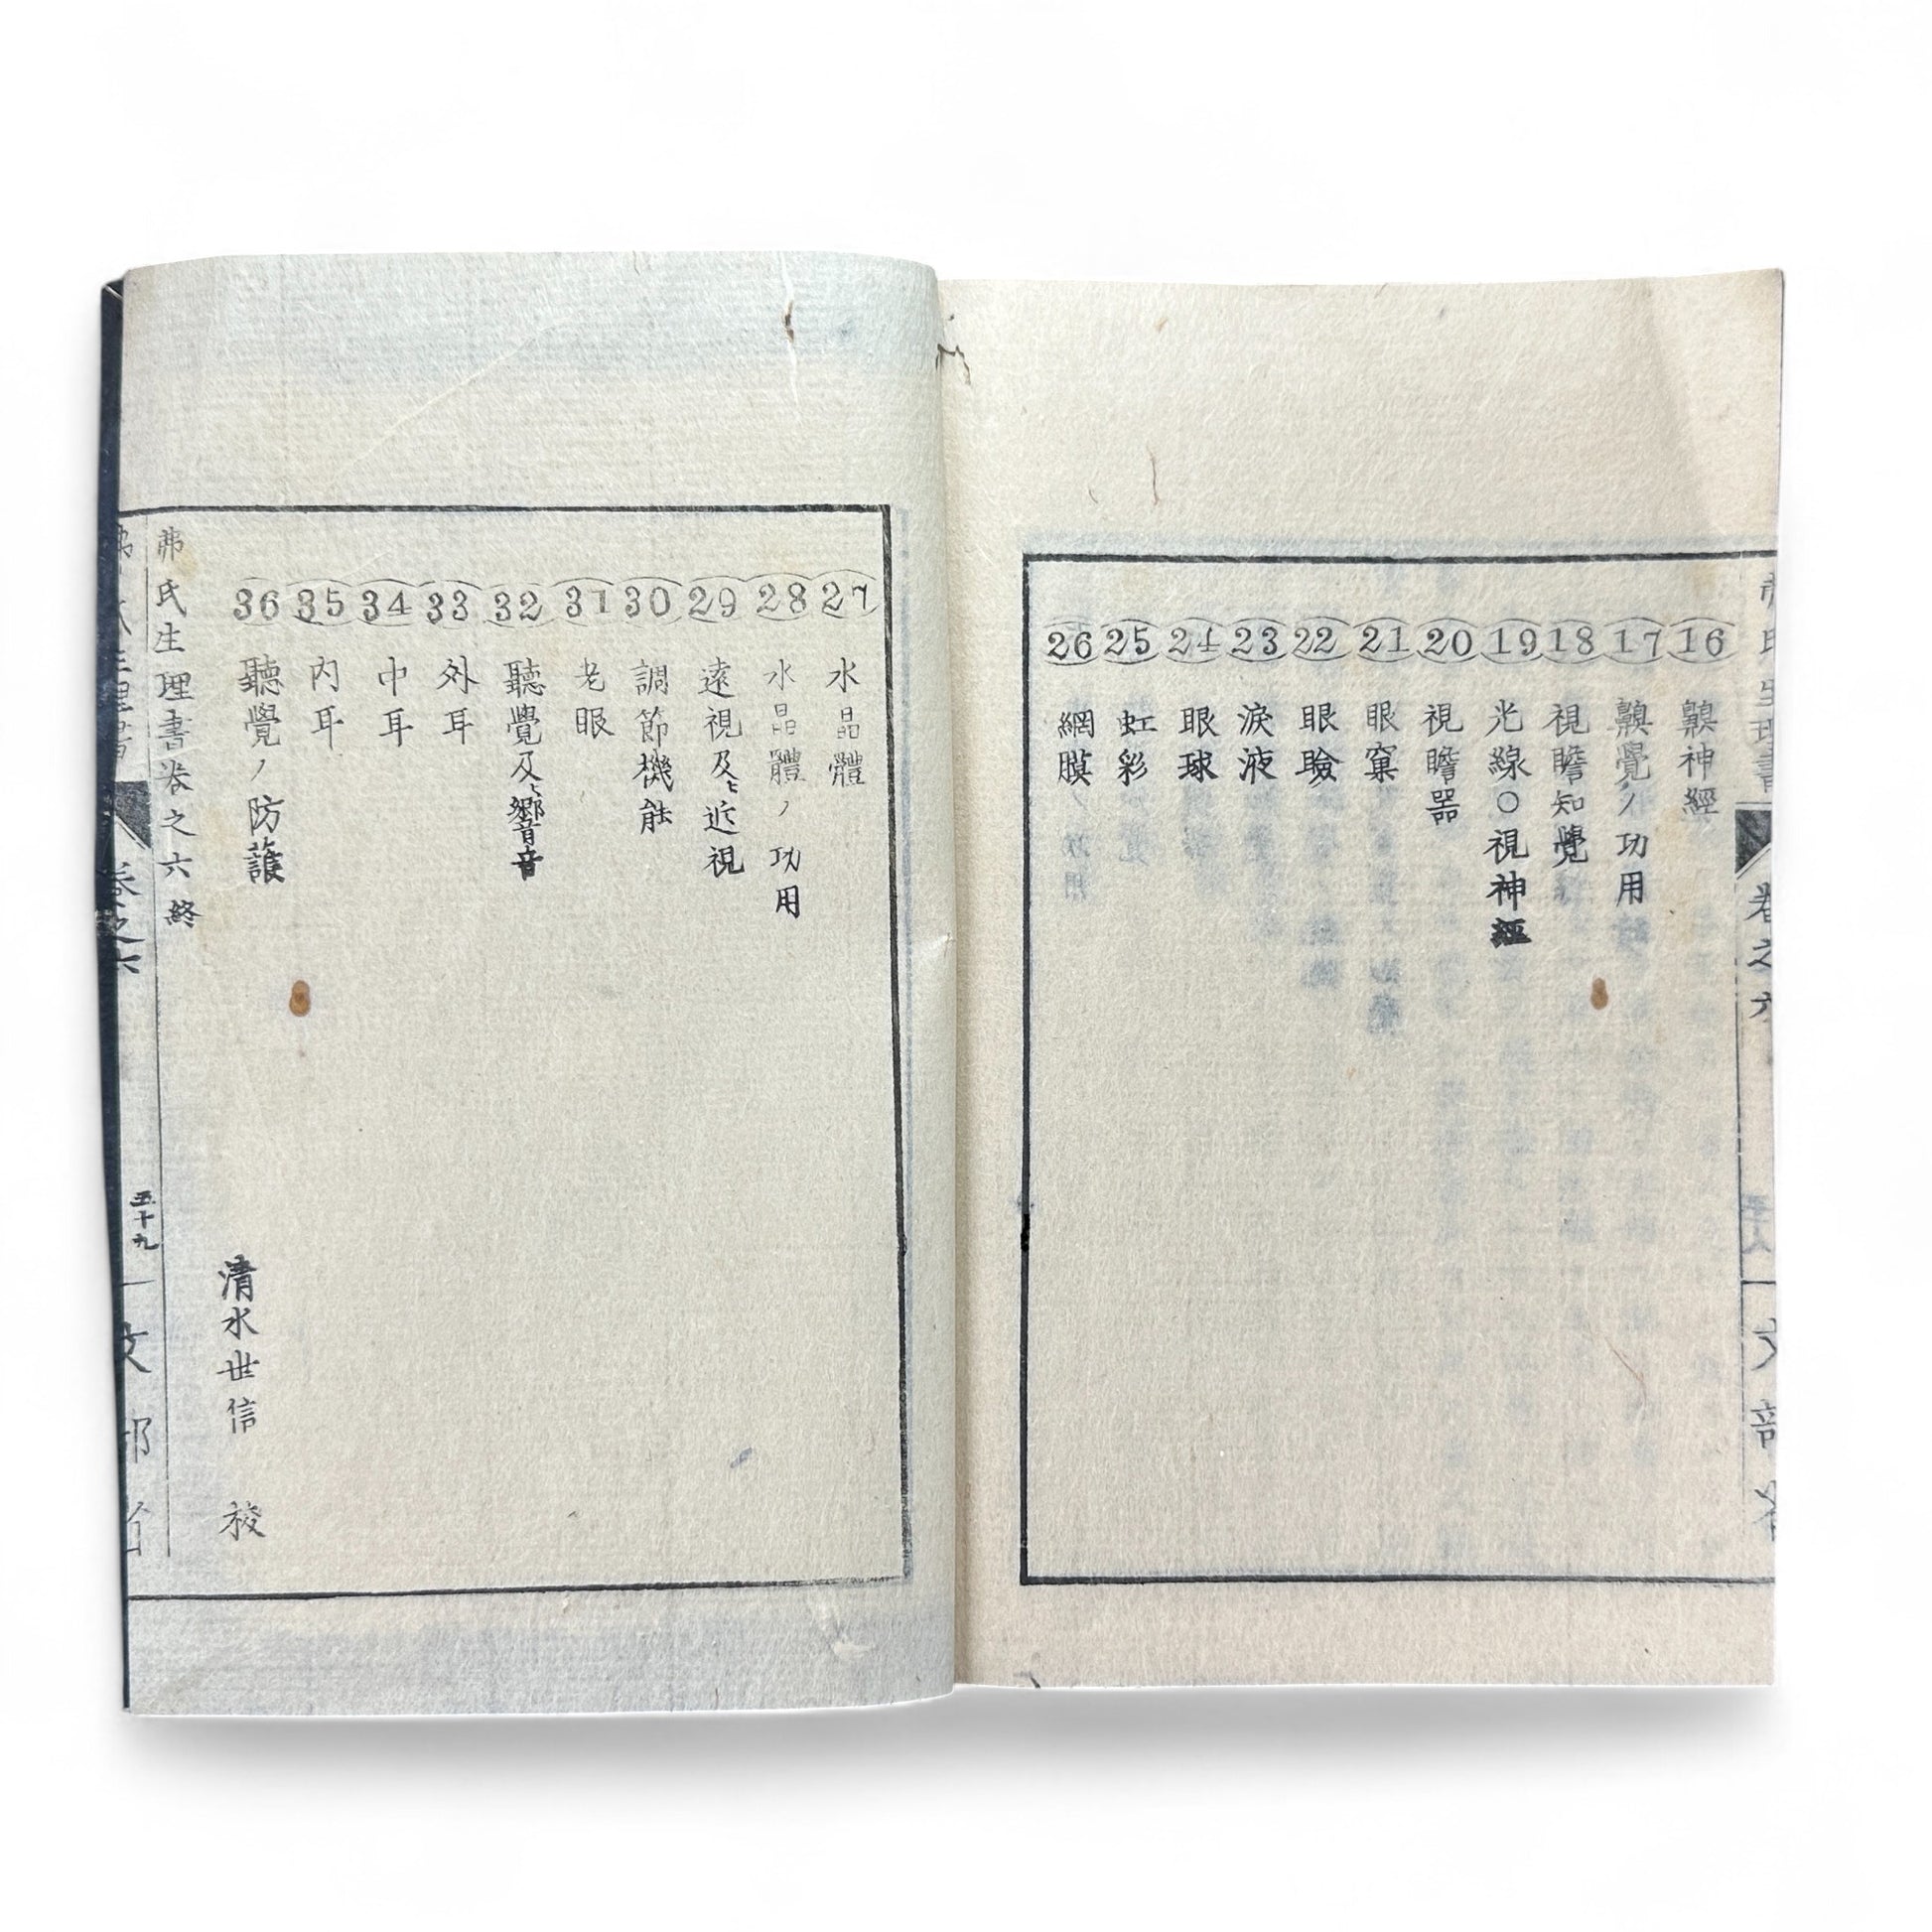 16 齅神經
17 齅覺ノ功用
18 視瞻知覺
19 光線〇視神經
20 視瞻器
21 眼窠
22 眼瞼
23 淚液
24 眼球
25 虹彩
26 網膜
27 水晶體
28 水晶體ノ功用
29 遠視及ヒ近視
30 調節機能
31 老眼
32 聽覺及ヒ響音
33 外耳
34 中耳
35 內耳
36 聽覺ノ防護
清水世信 校
弗氏生理書卷之六終
卷之六
五十九
文部省